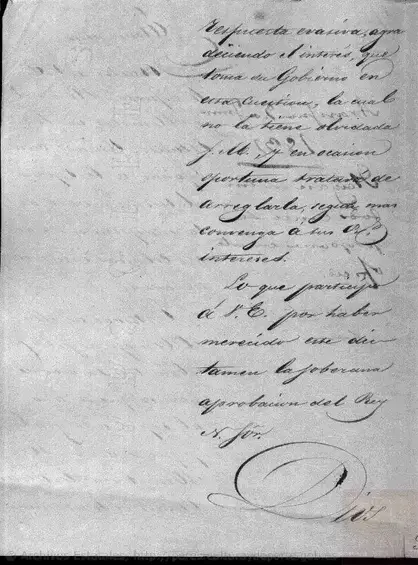 respuesta evasiva, agra
deciendo el interés, que
toma su Gobierno en
esta cuestion, la cual
no la tiene olvidada
S. M., y en ocasion
oportuna tratará de
arreglarla, segun mas
convenga á sus Rs.
intereses.
Lo que participo
á V. E. por haber
merecido este dic
tamen la soberana
aprobacion del Rey
N. Sor.
Dios